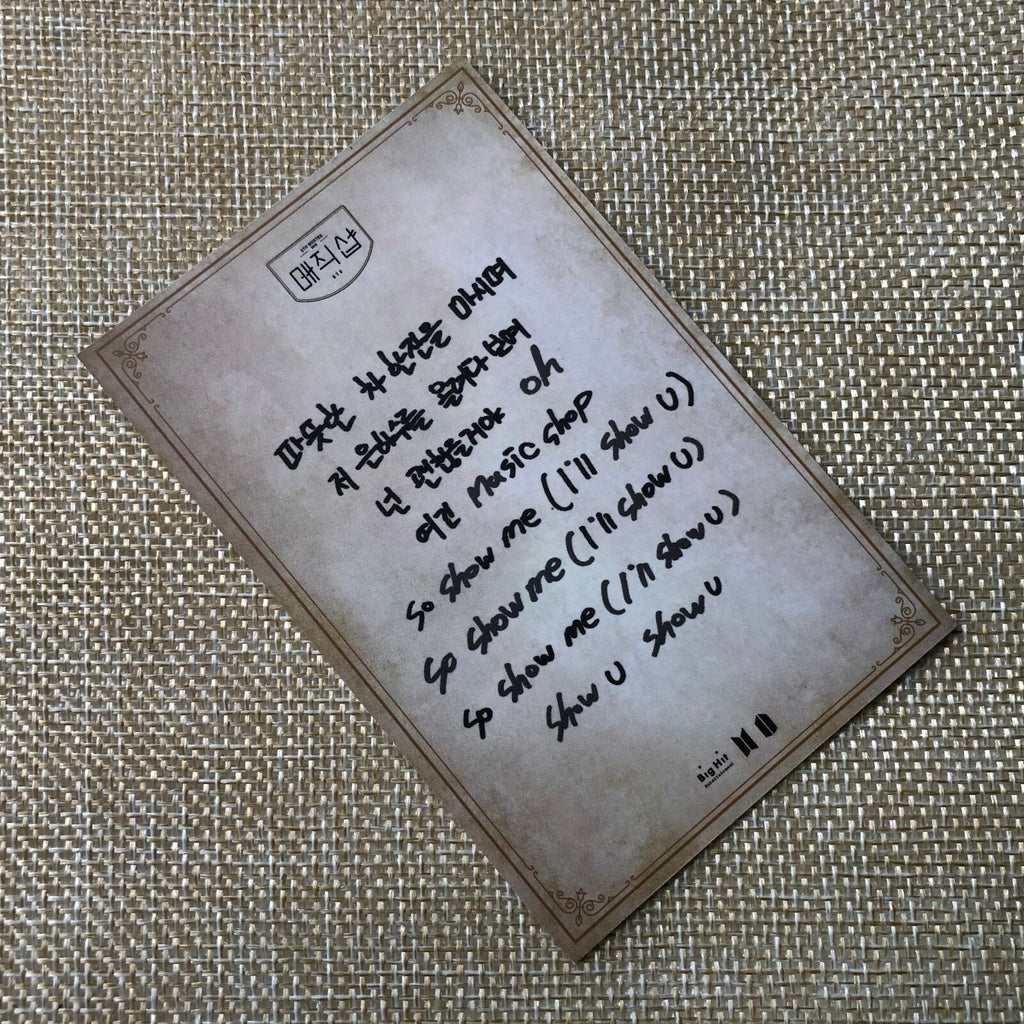 매직샵
BTS
따뜻한 차 한잔을 마시며
저 은하수를 올려다 보며
넌 괜찮을거야 oh
여긴 Magic shop
so show me (I'll show U)
so show me (I'll show U)
so show me (I'll show U)
show U show U
Big Hit
Entertainment